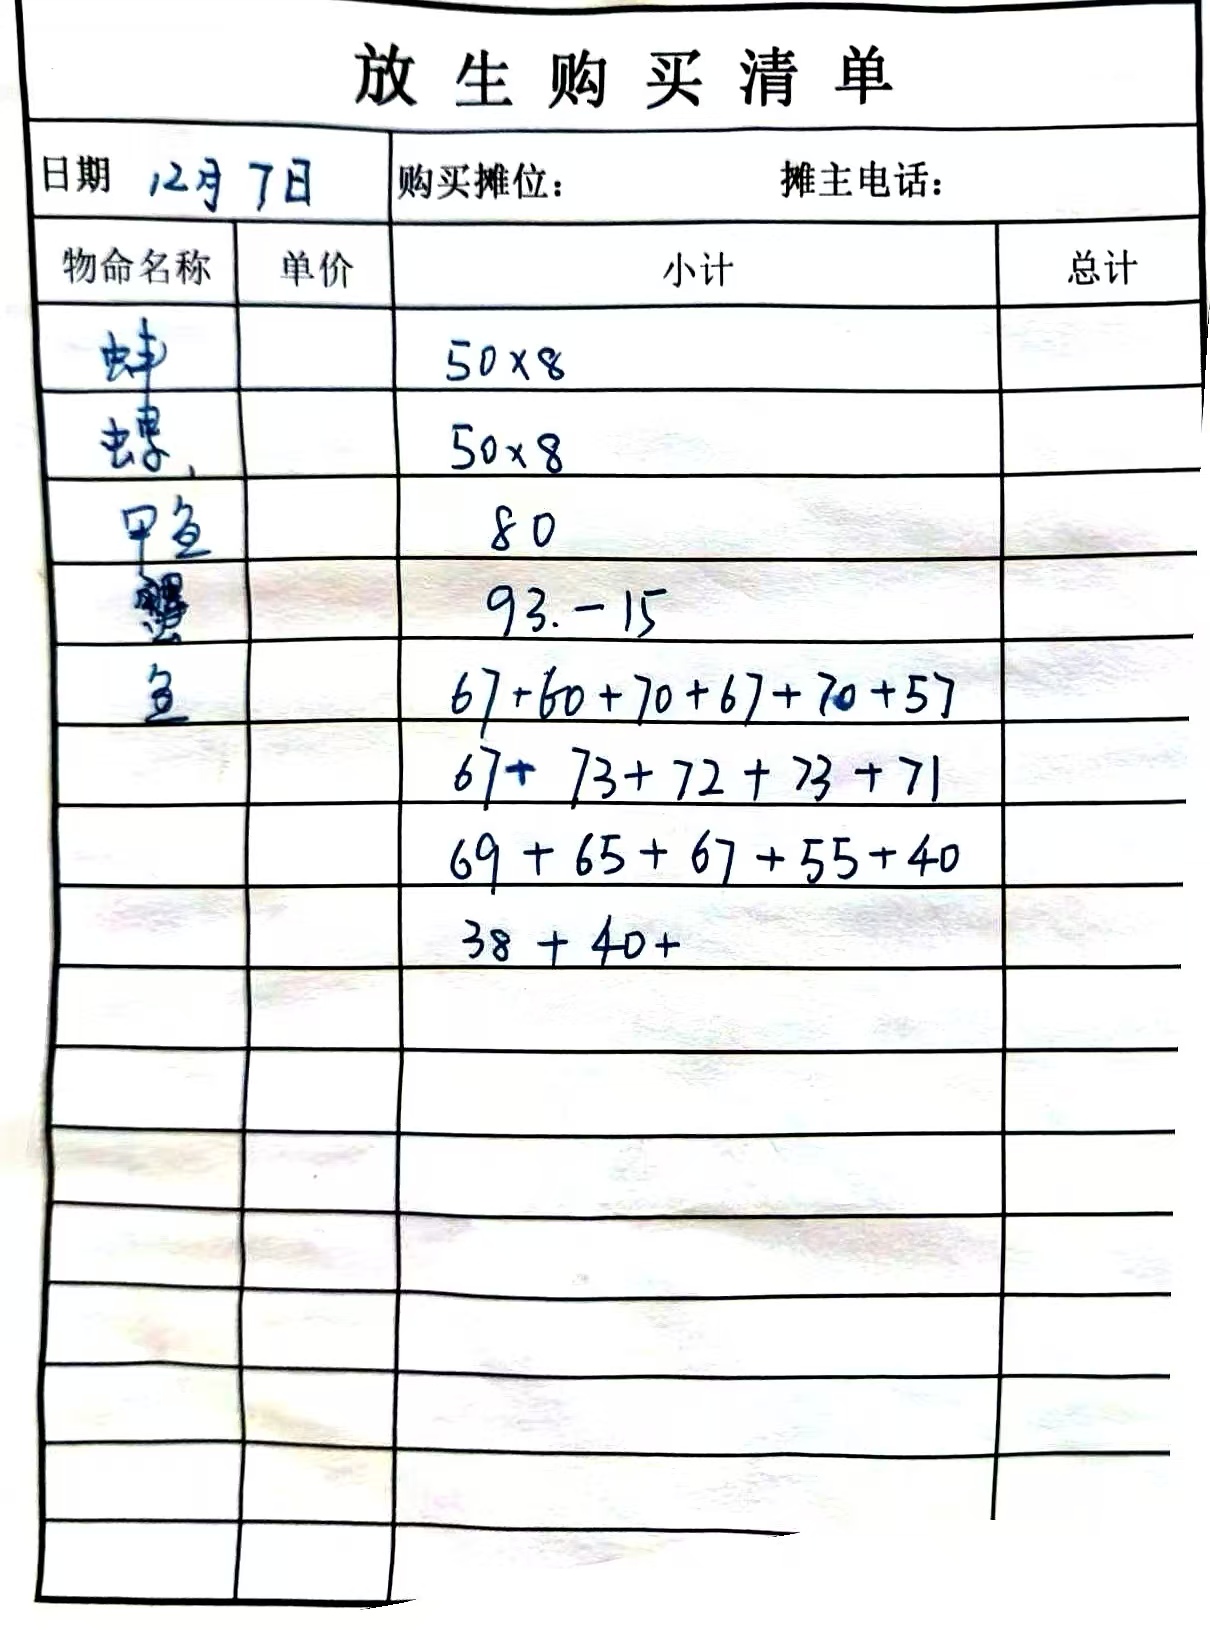 放生购买清单
日期 12月7日 购买摊位： 摊主电话：
物命名称 单价 小计 总计
蚌 50×8
螺、 50×8
甲鱼 80
93.-15
鱼 67+60+70+67+70+57
67+ 73+72+73+71
69+65+67+55+40
38+40+